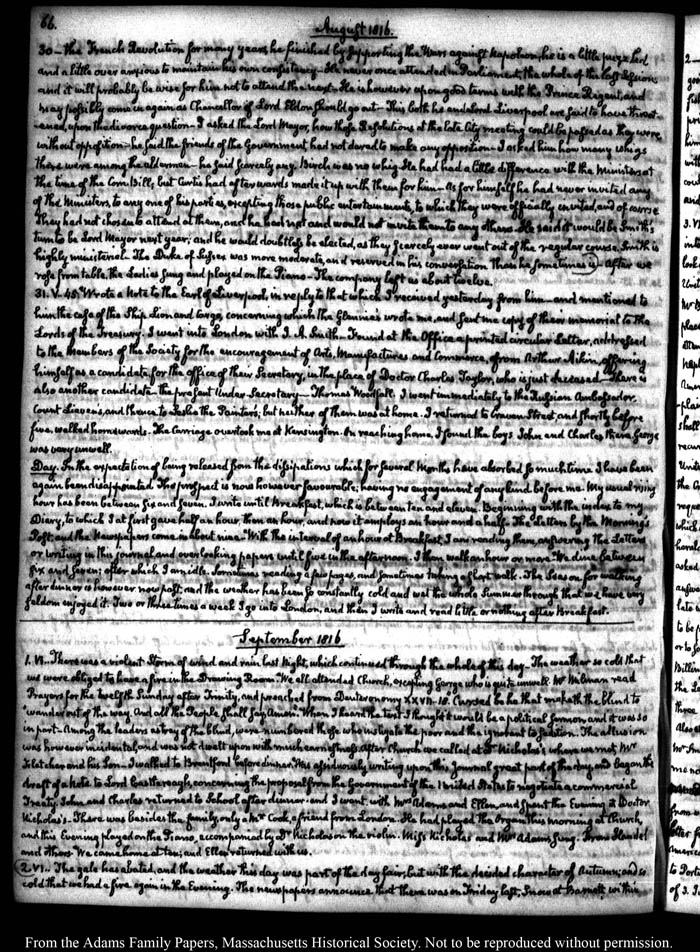 66.
August 1816.
30 — the French Revolution for many years, he finished by supporting the Wars against Napoleon, he is a little puzzled
and a little over anxious to maintain his own consistency. He never once attended in Parliament, the whole of the last Session
and it will probably be wise for him not to attend the next. He is however upon good terms with the Prince Regent, and
may possibly come in again as Chancellor if Lord Eldon should go out — This both he and Lord Liverpool are said to have threat-
-ened, upon the divorce question — I asked the Lord Mayor, how those Resolutions at the late City meeting could be passed as they were
without opposition — he said the friends of the Government had not dared to make any opposition — I asked him how many Whigs
there were among the aldermen — he said scarcely any. Birch was no whig. He had had a little difference with the Ministers at
the time of the Corn Bill, but Curtis had afterwards made it up with them for him — As for himself he had never invited any
of the Ministers, to any one of his parties, excepting those public entertainments, to which they were officially invited, and of course
They had not chosen to attend at them, and he had not and would not invite them to any others. He said it would be Smith's
turn to be Lord Mayor next year; and he would doubtless be elected, as they scarcely ever went out of the regular course. Smith is
highly ministerial. The Duke of Sussex was more moderate, and reserved in his conversation than he sometimes is. After we
rose from table, the Ladies sung and played on the Piano — The company left us about twelve.
31. V. 45. Wrote a Note to the Earl of Liverpool, in reply to that which I received yesterday from him — and mentioned to
him the case of the Ship Lion and cargo, concerning which the Glennies wrote me, and sent me copy of their memorial to the
Lords of the Treasury. I went into London with J. A. Smith — Found at the Office a printed circular Letter, addressed
to the Members of the Society for the encouragement of Arts, Manufactures and Commerce, from Arthur Aikin, offering
himself as a candidate for the office of their Secretary, in the place of Doctor Charles Taylor, who is just deceased — There is
also another candidate — the present Under Secretary — Thomas Woodfall. I went immediately to the Russian Ambassador,
Count Lievens, and thence to Leslie the Painter's; but neither of them was at home. I returned to Craven Street, and shortly before
five, walked homewards. The Carriage overtook me at Kensington. On reaching home, I found the boys John and Charles there. George
was very unwell.
Day. In the expectation of being released from the dissipations which for several Months have absorbed so much time I have been
again been disappointed. The prospect is now however favourable; having no engagement of any kind before me. My usual rising
hour has been between five and seven. I write until Breakfast, which is between ten and eleven. Beginning with the index to my
Diary, to which I at first gave half an hour, then an hour, and now it employs an hour and a half. The Letters by the Morning's
Post, and the Newspapers come in about nine. With the interval of an hour at Breakfast, I am reading them, answering the Letters
or writing in this journal and overlooking papers until five in the afternoon. I then walk an hour or more. We dine between
six and seven; after which I am idle. Sometimes reading a few pages, and sometimes taking a short walk. The Season for walking
after dinner is however now past, and the weather has been so constantly cold and wet the whole Summer through that we have very
seldom enjoyed it. Two or three times a week I go into London, and then I write and read little or nothing after Breakfast.
September 1816
1. VI. There was a violent Storm of wind and rain last Night, which continued through the whole of this day — The weather so cold that
we were obliged to have a fire in the Drawing Room. We all attended Church, excepting George who is quite unwell. Mr. Holman read
Prayers for the twelfth Sunday after Trinity, and preached from Deuteronomy XXVII. 18. Cursed be he that maketh the blind to
wander out of the way. And all the People shall say, Amen. When I heard the text I thought it would be a political Sermon, and it was so
in part. Among the leaders astray of the blind, were numbered those who instigate the poor and the ignorant to Sedition. The allusion
was however incidental, and was not dwelt upon with much earnestness. After Church we called at Dr. Nicholas's where we met Mr.
Fletcher and his Son — I walked to Brentford before dinner. Was assiduously writing upon this Journal great part of the day, and began the
draft of a Note to Lord Castlereagh, concerning the proposal from the Government of the United States to negotiate a commercial
Treaty. John and Charles returned to School after dinner — and I went, with Mrs. Adams and Ellen, and spent the Evening at Doctor
Nicholas's. There was besides the family, only a Mr. Cook, a friend from London. He had played the Organ this morning at Church,
and this Evening played on the Piano, accompanied by Dr. Nicholas on the violin. Miss Nicholas and Mrs. Adams sung. From Handel
and others. We came home at ten; and Ellen returned with us.
2. VI. The gale has abated, and the weather this day was part of the day fair, but with the decided character of Autumn; and so
cold that we had a fire again in the Evening. The newspapers announce that there was on Friday last, Snow at Barnet, within
From the Adams Family Papers, Massachusetts Historical Society. Not to be reproduced without permission.